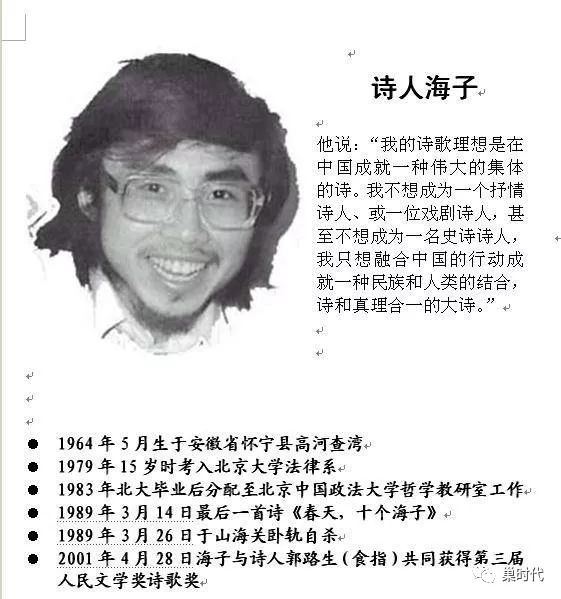 诗人海子
他说：“我的诗歌理想是在
中国成就一种伟大的集体
的诗。我不想成为一个抒情
诗人、或一位戏剧诗人，甚
至不想成为一名史诗诗人，
我只想融合中国的行动成
就一种民族和人类的结合，
诗和真理合一的大诗。”
● 1964 年 5 月生于安徽省怀宁县高河查湾
● 1979 年 15 岁时考入北京大学法律系
● 1983 年北大毕业后分配至北京中国政法大学哲学教研室工作
● 1989 年 3 月 14 日最后一首诗《春天，十个海子》
● 1989 年 3 月 26 日于山海关卧轨自杀
● 2001 年 4 月 28 日海子与诗人郭路生（食指）共同获得第三届
人民文学奖诗歌奖
巢时代